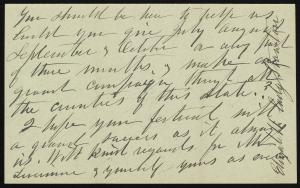 You should be here to help us.
Could you give July August
September & October or any part
of three months, & make a
grand campaign through all
the counties of this State!
I hope your festival will
a grand success as it always
is. With kind regards for Mr
& yourself yours as ever